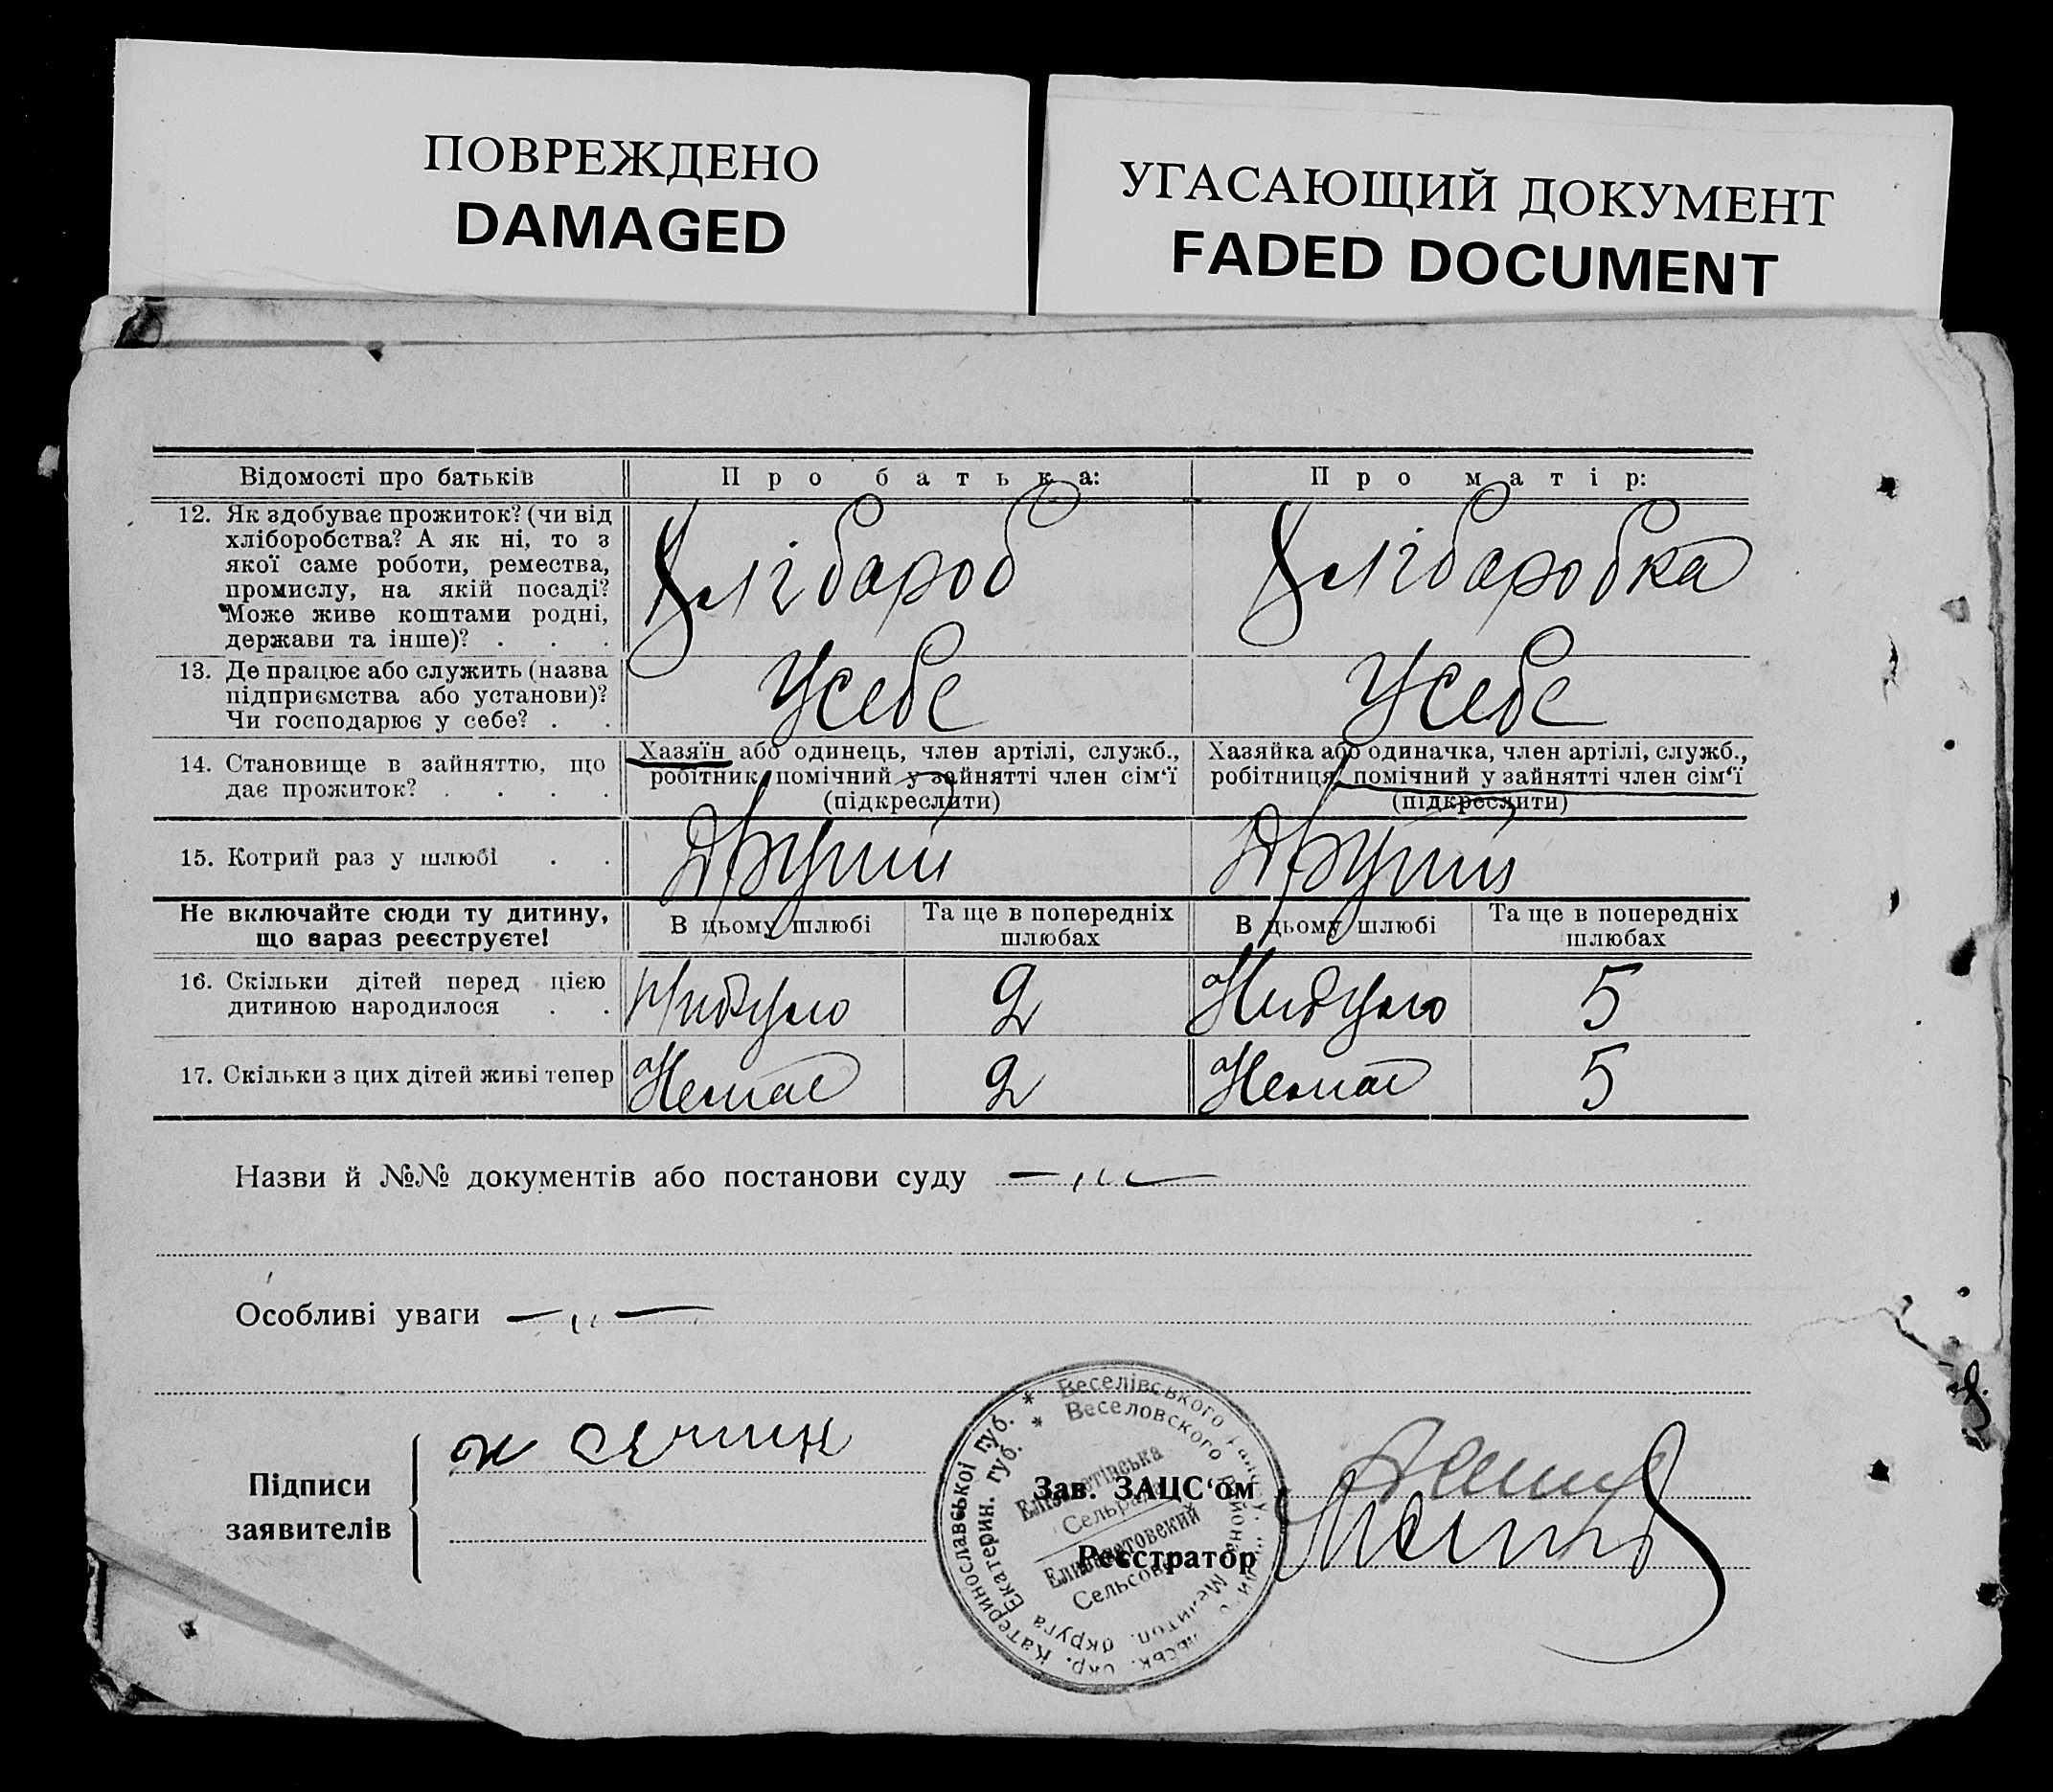 ПОВРЕЖДЕНО
DAMAGED
УГАСАЮЩИЙ ДОКУМЕНТ
FADED DOCUMENT
Відомості про батьків
Про батька:
Про матір:
12. Як здобуває прожиток? (чи від
хліборобства? А як ні, то з
якої саме роботи, ремества,
промислу, на якій посаді?
Може живе коштами родні,
держави та інше)? . . .
Хлібароб
Хлібаробка
13. Де працює або служить (назва
підприємства або установи)?
Чи господарює у себе? . .
Усебе
Усебе
14. Становище в зайняттю, що
дає прожиток? . . . .
Хазяїн або одинець, член артілі, служб.,
робітник, помічний у зайнятті член сім‘ї
(підкреслити)
Хазяйка або одиначка, член артілі, служб.,
робітниця, помічний у зайнятті член сім‘ї
(підкреслити)
15. Котрий раз у шлюбі . .
Другий
Другий
Не включайте сюди ту дитину,
що зараз реєструєте!
В цьому шлюбі
Та ще в попередніх
шлюбах
В цьому шлюбі
Та ще в попередніх
шлюбах
16. Скільки дітей перед цією
дитиною народилося . .
Нибуло
2
Нибуло
5
17. Скільки з цих дітей живі тепер
Немає
2
Немає
5
Назви й №№ документів або постанови суду
Особливі уваги
Підписи
заявителів
Зав. ЗАЦС‘ом
Реєстратор
Веселівського
Катеринославської губ. *
Веселовского района Мелитоп. округа Екатерин. губ. *
Сельрада
Елизаветовский